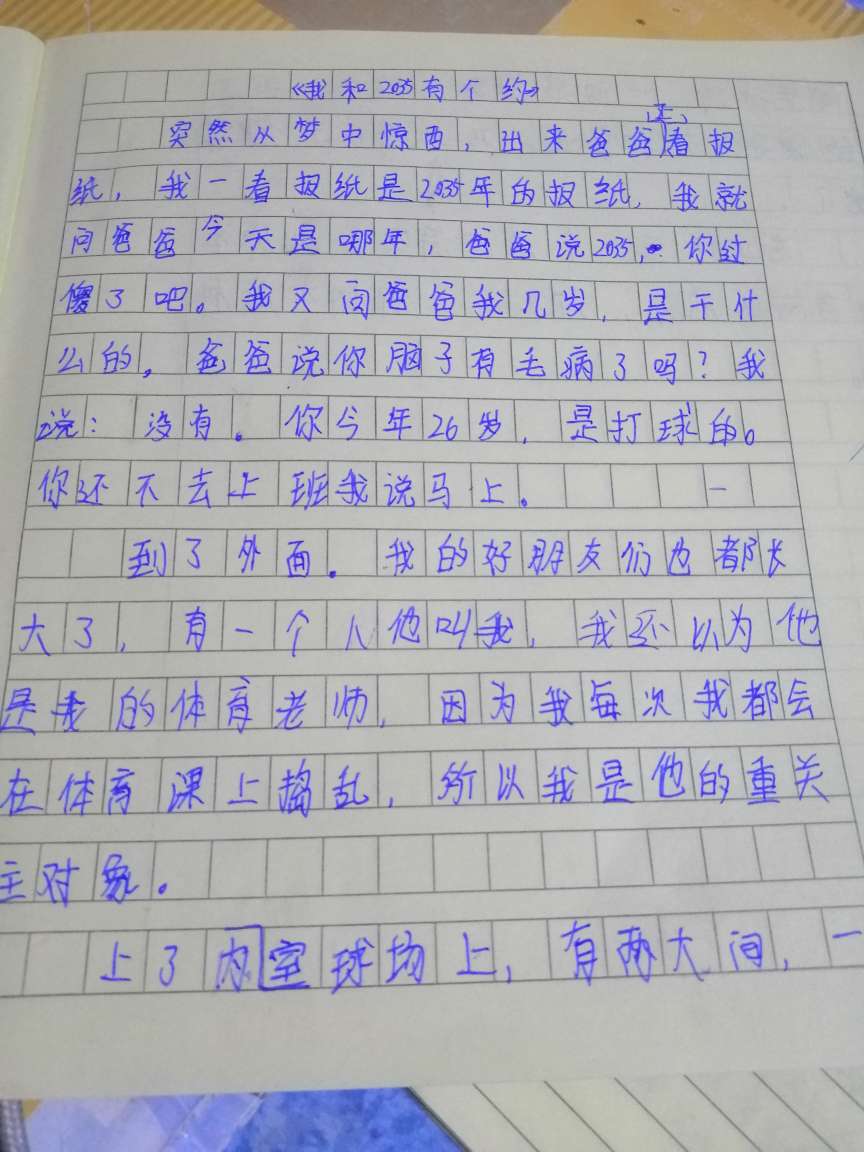 《我和2035有个约》
突然从梦中惊西，出来爸爸正看报
纸，我一看报纸是2035年的报纸，我就
问爸爸今天是哪年，爸爸说2035，你过
傻了吧。我又问爸爸我几岁，是干什
么的，爸爸说你脑子有毛病了吗？我
说：没有。你今年26岁，是打球的。
你还不去上班我说马上。
到了外面。我的好朋友们也都长
大了，有一个人他叫我，我还以为他
是我的体育老师，因为我每次我都会
在体育课上捣乱，所以我是他的重关
主对象。
上了内室球场上，有两大间，一